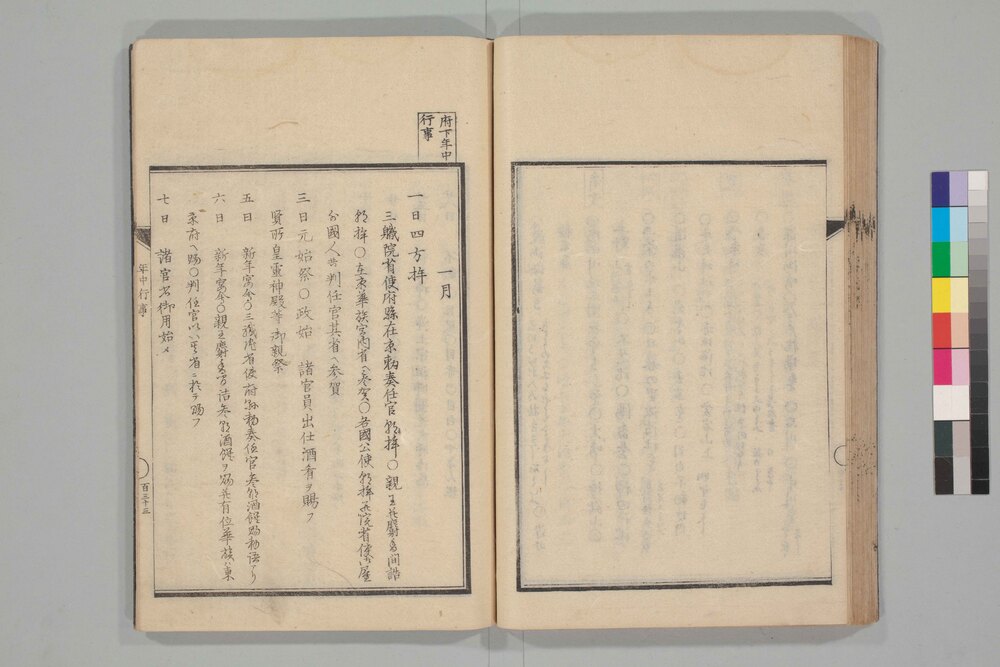 府下年中
行事
一月
一日四方拝
三職院省使府縣在京勅奏任官朝拝〇親王並麝香間詣
朝拝〇在京華族宮内省ヘ参賀〇各國公使朝拝並院省使雇
外國人共判任官其省ヘ参賀
三日元始祭〇政始 諸官員出仕酒肴ヲ賜フ
賢所皇霊神殿等御親祭
五日 新年宴會〇三職院省使府縣勅奏任官参朝酒饌賜勅語アリ
六日 新年宴會〇親王麝香間詣参朝酒饌ヲ賜並有位華族ハ東
京府ヘ賜〇判任官以下其省ニ於テ賜フ
七日 諸官省御用始メ
年中行事
百三十三